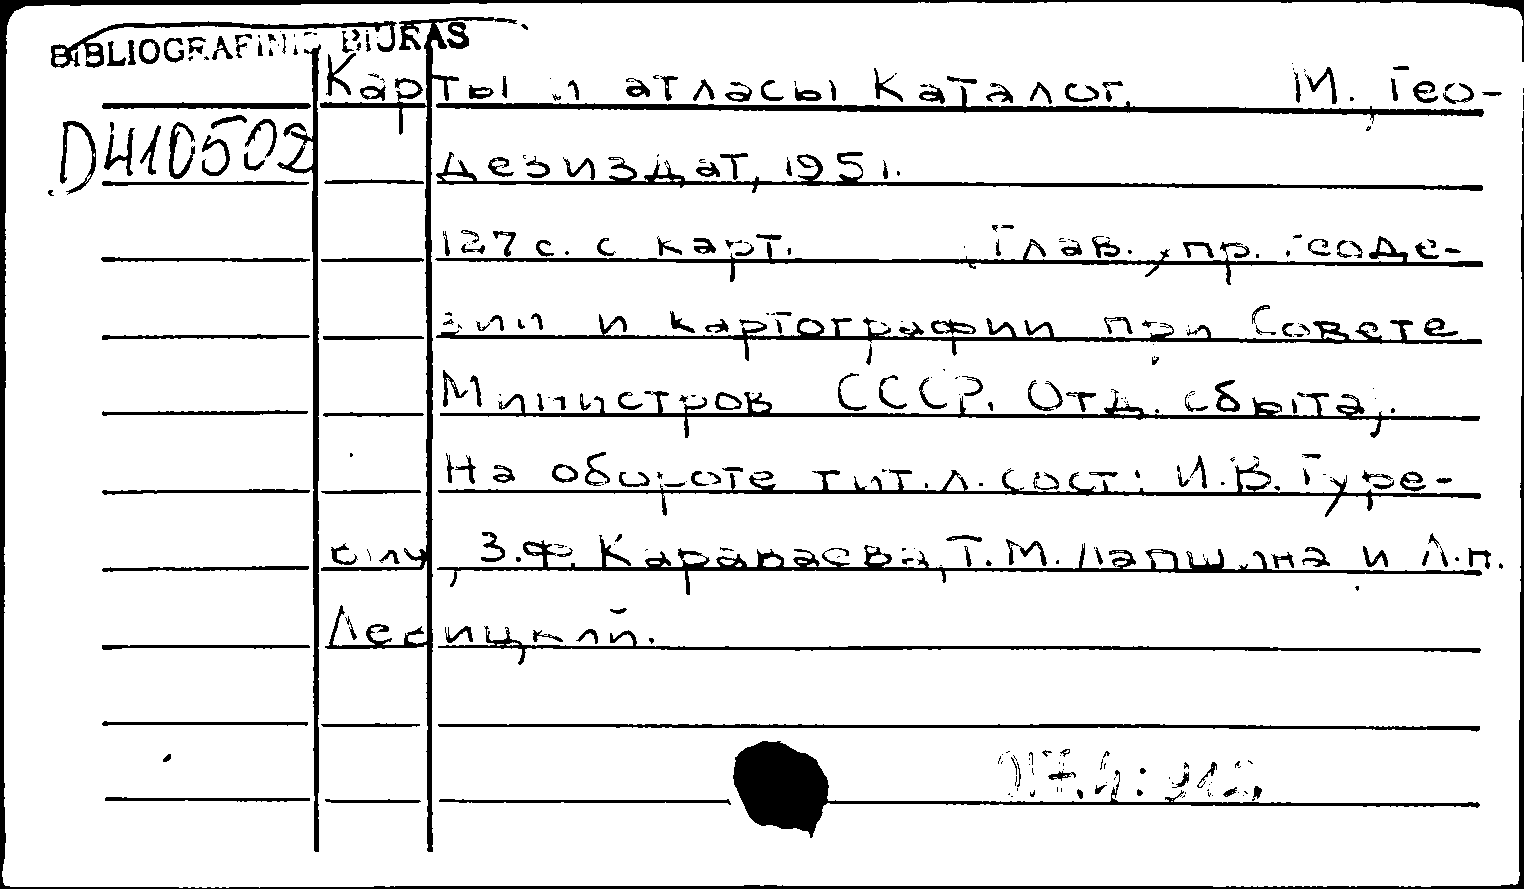 BIBLIOGRAFINIS BIURAS
Карты и атласы Каталог. М., Гео-
D410502
дезиздат, 1951.
127 с. с карт. (Глав. упр. геоде-
зии и картографии при Совете
Министров СССР. Отд. сбыта).
На обороте тит. л. сост: И.В. Гуре-
З.Ф. Караваева, Т.М. Лапшина и Л.П.
Лесицкий.
017.4:912